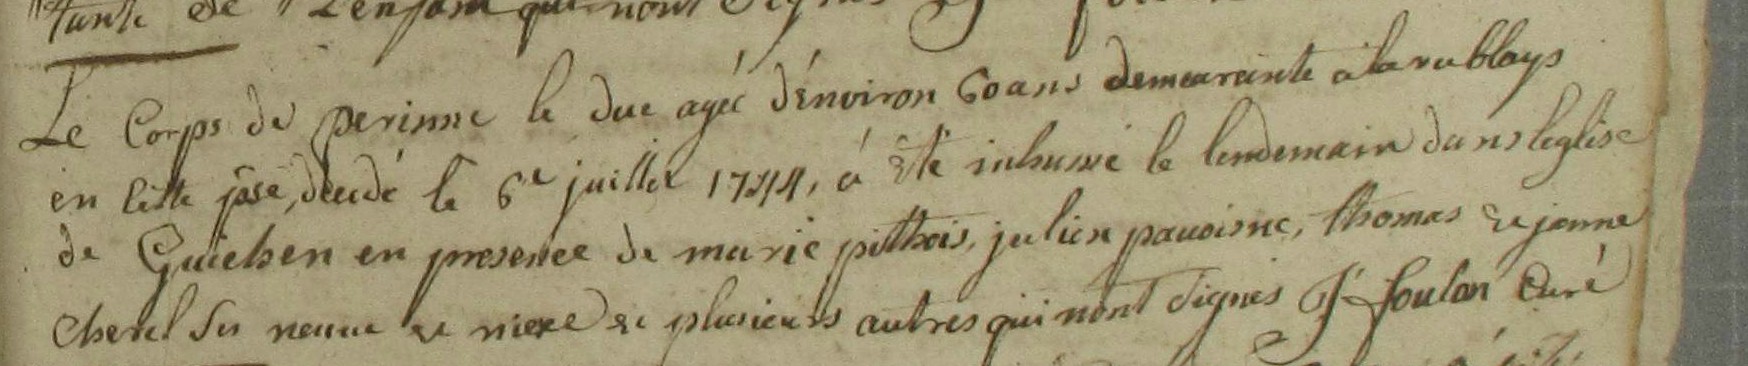 tante de L'enfant qui nont signés
Le Corps de perinne le duc agéé d'énviron 60 ans demeurante a la rublays
en cette psse, decedé le 6e juillet 1744, á eté inhumé le lendemain dans leglise
de Guichen en presence de marie pithois, julien pauoisne, thomas et janne
cherel ses neueu et niexe et plusieurs autres qui nont signés J foulon Curé